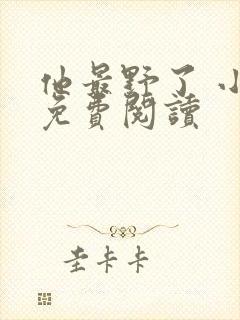 他最野了 小
免費閱讀
圭卡卡